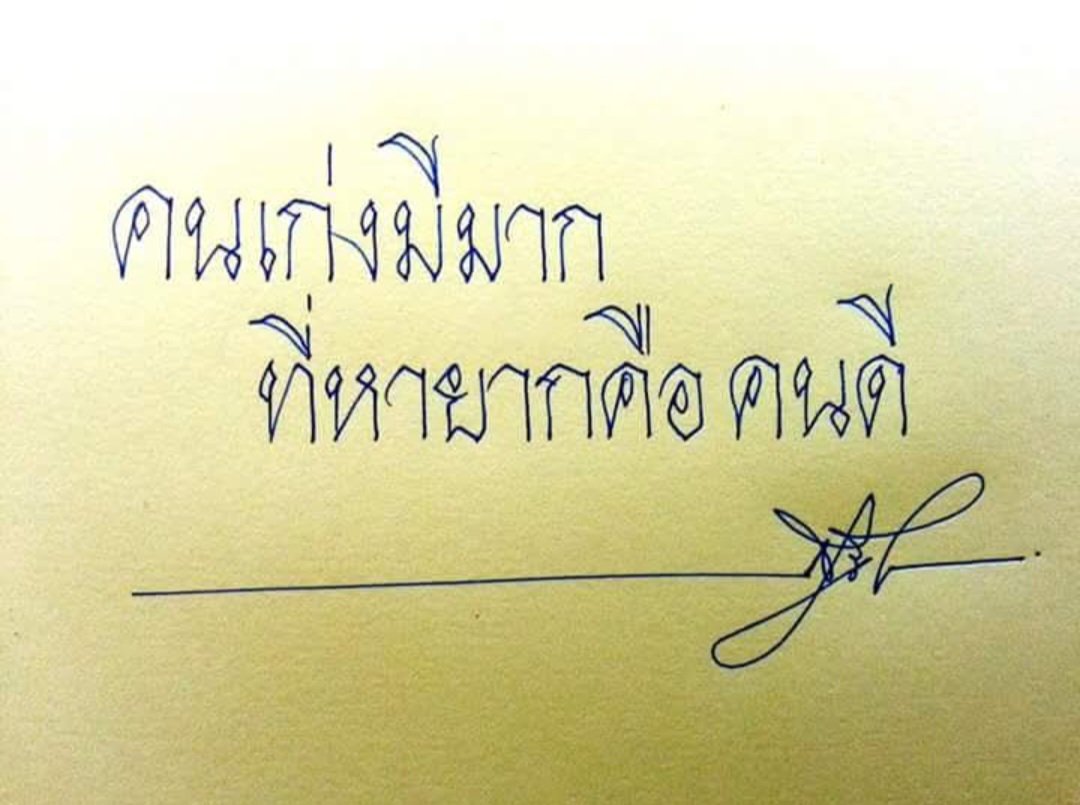 คนเก่งมีมาก
ที่หายากคือ คนดี